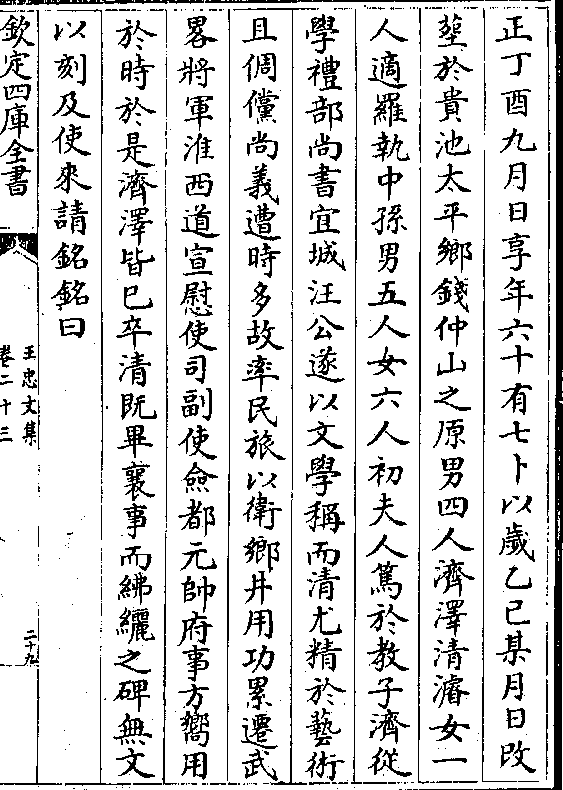 正丁酉九月日享年六十有七卜以歲乙巳某月日改
塟於貴池太平鄉錢仲山之原男四人濟澤清濬女一
人適羅執中孫男五人女六人初夫人篤於教子濟從
學禮部尚書宜城汪公遂以文學稱而清尤精於藝術
且倜儻尚義遭時多故率民旅以衛鄉井用功累遷武
畧將軍淮西道宣慰使司副使僉都元帥府事方嚮用
於時於是濟澤皆已卒清既畢襄事而紼纚之碑無文
以刻及使來請銘銘曰
欽定四庫全書
王忠文集
卷二十三
二十九